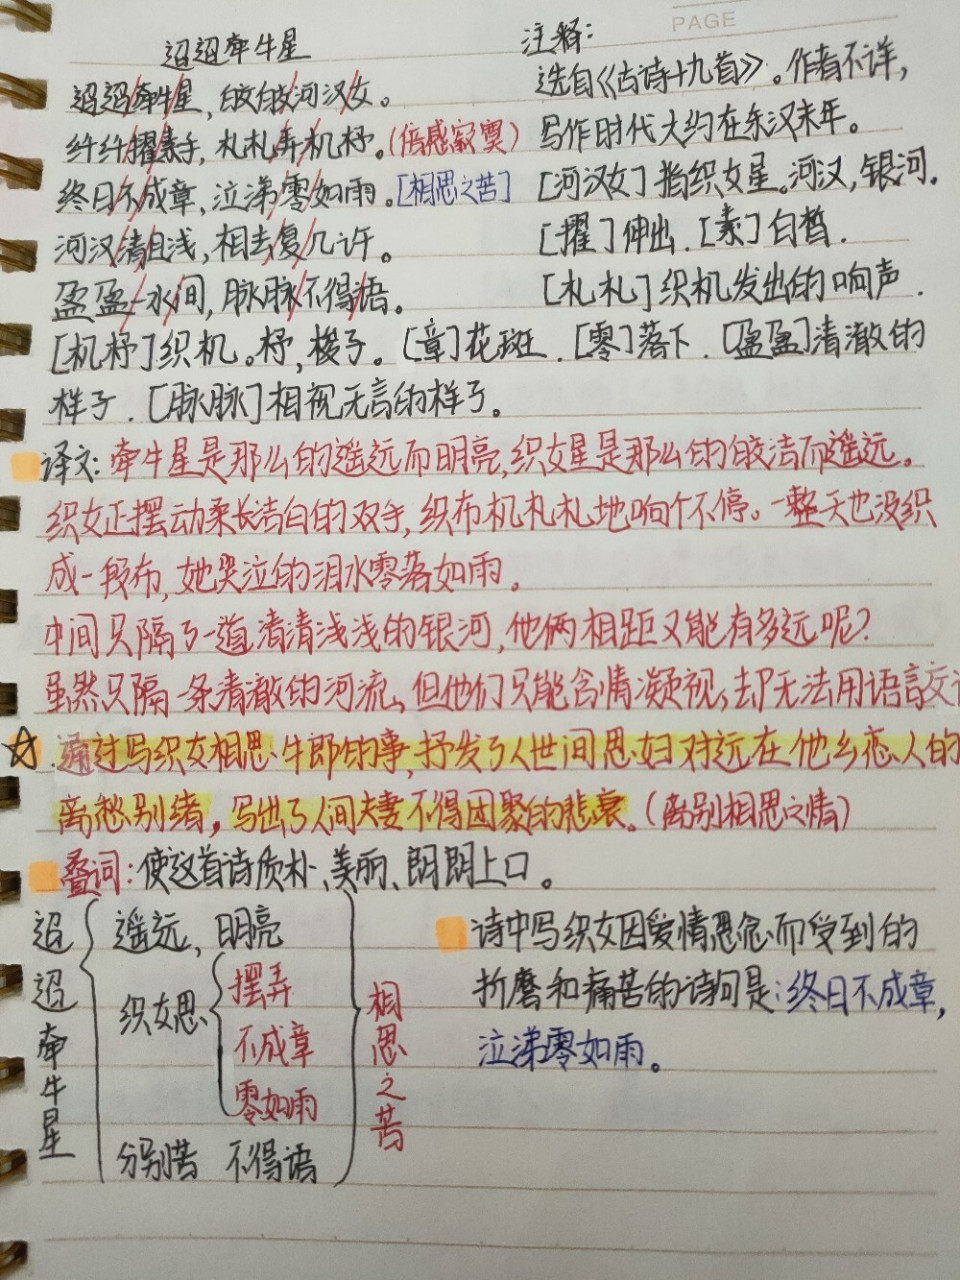 PAGE
迢迢牵牛星
迢迢/牵牛/星,皎皎/河汉/女。
纤纤/擢/素手,札札/弄/机杼。(倍感寂寞)
终日/不/成章,泣涕/零/如雨。[相思之苦]
河汉/清/且浅,相去/复/几许。
盈盈/一水/间,脉脉/不得/语。
注释:
选自《古诗十九首》。作者不详,
写作时代大约在东汉末年。
[河汉女]指织女星。河汉,银河。
[擢]伸出.[素]白皙.
[札札]织机发出的响声.
[机杼]织机。杼,梭子。[章]花斑.[零]落下.[盈盈]清澈的
样子.[脉脉]相视无言的样子。
译文:牵牛星是那么的遥远而明亮,织女星是那么的皎洁而遥远。
织女正摆动柔长洁白的双手,织布机札札地响个不停。一整天也没织
成一段布,她哭泣的泪水零落如雨。
中间只隔了一道清清浅浅的银河,他俩相距又能有多远呢?
虽然只隔一条清澈的河流,但他们只能含情凝视,却无法用语言交
☆.通过写织女相思牛郎的事,抒发了人世间思妇对远在他乡恋人的
离愁别绪,写出了人间夫妻不得团聚的悲哀。(离别相思之情)
叠词:使这首诗质朴、美丽、朗朗上口。
迢迢牵牛星
遥远,明亮
织女思
摆弄
不成章
零如雨
分别苦 不得语
相思之苦
诗中写织女因爱情思念而受到的
折磨和痛苦的诗句是:终日不成章,
泣涕零如雨。